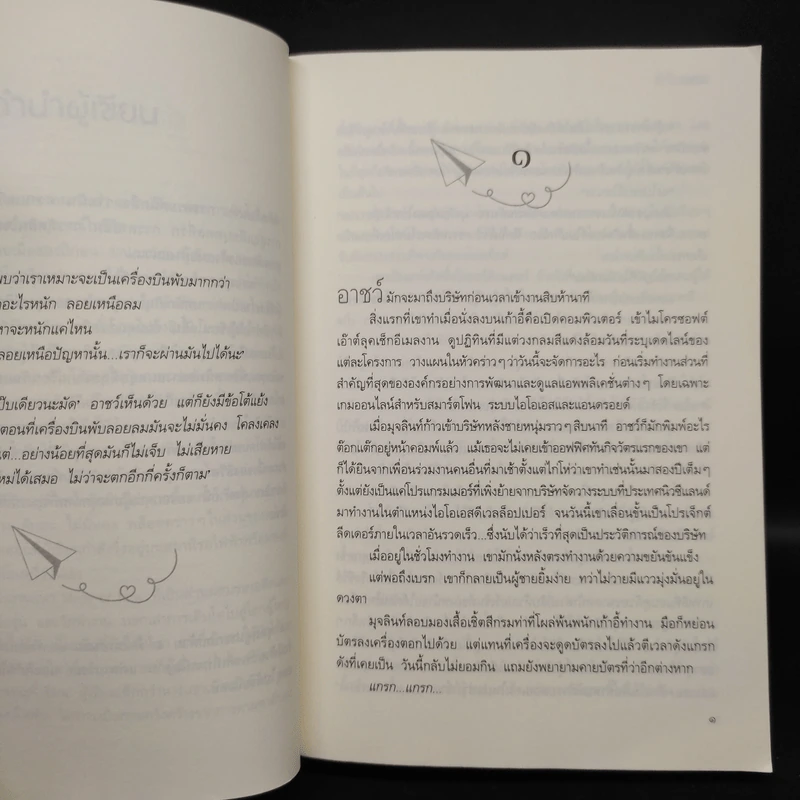 บว่าเราเหมาะจะเป็นเครื่องบินพับมากกว่า
อะไรหนัก ลอยเหนือลม
จะหนักแค่ไหน
ลอยเหนือปัญหานั้น...เราก็จะผ่านมันไปได้นะ”
เป๊ียบเดียวนะมัด” อาชว์เห็นด้วย แต่ก็ยังมีข้อโต้แย้ง
ตอนที่เครื่องบินพับลอยลมมันจะไม่มั่นคง โคลงเคลง
ต่...อย่างน้อยที่สุดมันก็ไม่เจ็บ ไม่เสียหาย
หม่ได้เสมอ ไม่ว่าจะตกอีกกี่ครั้งก็ตาม”
๑
อาชว์ มักจะมาถึงบริษัทก่อนเวลาเข้างานสิบห้านาที
สิ่งแรกที่เขาทำเมื่อนั่งลงบนเก้าอี้คือเปิดคอมพิวเตอร์ เข้าไมโครซอฟต์
เอ๊าต์ลุคเช็กอีเมลงาน ดูปฏิทินที่มีแต่วงกลมสีแดงล้อมวันที่ระบุเดดไลน์ของ
แต่ละโครงการ วางแผนในหัวคร่าวๆว่าวันนี้จะจัดการอะไร ก่อนเริ่มทำงานส่วนที่
สำคัญที่สุดขององค์กรอย่างการพัฒนาและดูแลแอพพลิเคชั่นต่างๆ โดยเฉพาะ
เกมออนไลน์สำหรับสมาร์ตโฟน ระบบไอโอเอสและแอนดรอยด์
เมื่อมุจลินท์ก้าวเข้าบริษัทหลังชายหนุ่มราวๆสิบนาที อาชว์ก็มักพิมพ์อะไร
ต๊อกแต๊กอยู่หน้าคอมพ์แล้ว แม้เธอจะไม่เคยเข้าออฟฟิศทันกิจวัตรแรกของเขา แต่
ก็ได้ยินจากเพื่อนร่วมงานคนอื่นที่มาเช้าตั้งแต่ไก่โห่ว่าเขาทำเช่นนั้นมาสองปีเต็มๆ
ตั้งแต่ยังเป็นแค่โปรแกรมเมอร์ที่เพิ่งย้ายจากบริษัทจัดวางระบบที่ประเทศนิวซีแลนด์
มาทำงานในตำแหน่งไอโอเอสดีเวลล็อปเปอร์ จนวันนี้เขาเลื่อนขั้นเป็นโปรเจ็กต์
ลีดเดอร์ภายในเวลาอันรวดเร็ว...ซึ่งนับได้ว่าเร็วที่สุดเป็นประวัติการณ์ของบริษัท
เมื่ออยู่ในชั่วโมงทำงาน เขามักนั่งหลังตรงทำงานด้วยความขยันขันแข็ง
แต่พอถึงเบรก เขาก็กลายเป็นผู้ชายยิ้มง่าย ทว่าไม่วายมีแววมุ่งมั่นอยู่ใน
ดวงตา
มุจลินท์ลอบมองเสื้อเชิ้ตสีกรมท่าที่โผล่พ้นพนักเก้าอี้ทำงาน มือก็หย่อน
บัตรลงเครื่องตอกไปด้วย แต่แทนที่เครื่องจะดูดบัตรลงไปแล้วตีเวลาดังแกรก
ดังที่เคยเป็น วันนี้กลับไม่ยอมกิน แถมยังพยายามคายบัตรที่ว่าอีกต่างหาก
แกรก...แกรก...
๑